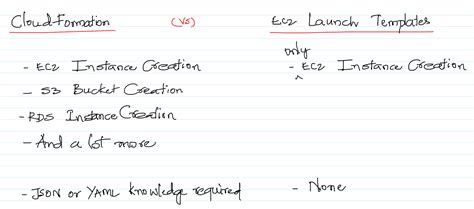 CloudFormation (vs) EC2 Launch Templates
- EC2 Instance Creation - only EC2 Instance Creation
- S3 Bucket Creation
- RDS Instance Creation
- And a lot more
- JSON or YAML knowledge required - None